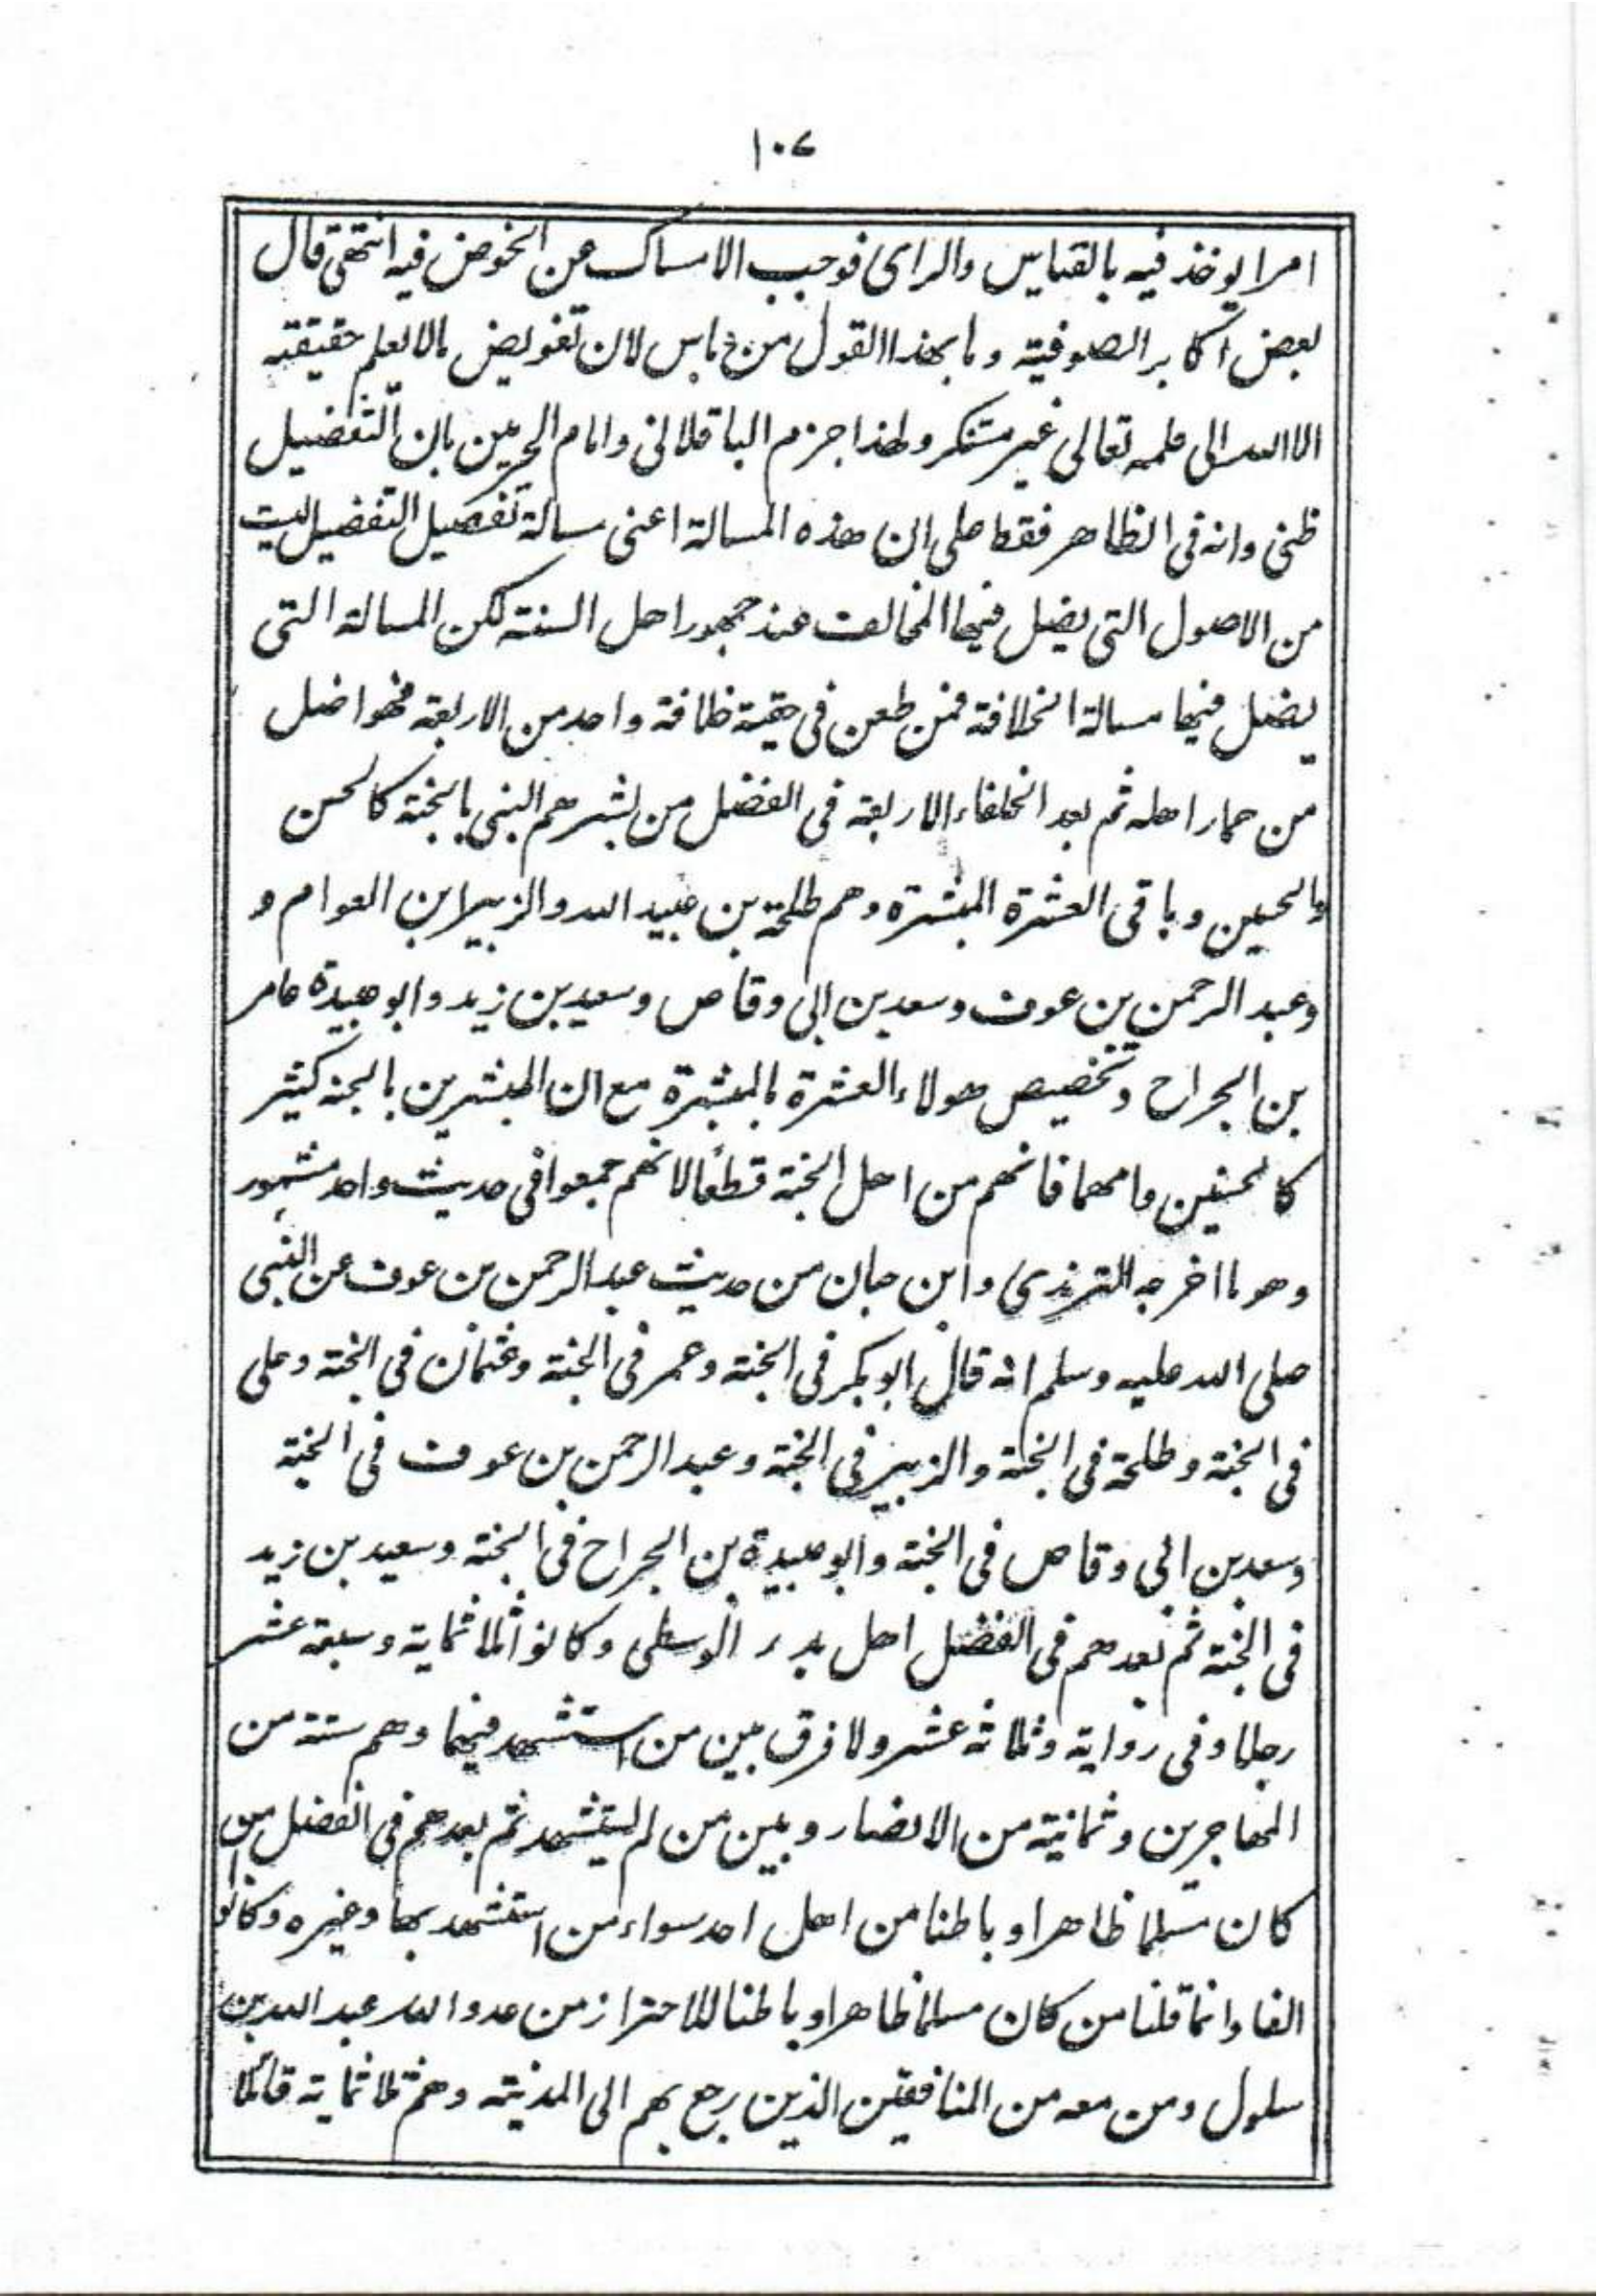 ١٠٧
امرا يوخذ فيه بالقياس والراى فوجب الامساك عن الخوض فيه انتهى قال
بعض اكابر الصوفية وما بهذا القول من باس لان تفويض مالا يعلم حقيقته
الا الله الى علمه تعالى غير مستنكر ولهذا جزم الباقلانى وامام الحرمين بان التفضيل
ظنى وانه فى الظاهر فقط على ان هذه المسالة اعنى مسالة تفصيل التفضيل ليست
من الاصول التى يضل فيها المخالف عند جمهور اهل السنة لكن المسالة التى
يضلل فيها مسالة الخلافة فمن طعن فى حقية خلافة واحد من الاربعة فهو اضل
من حمار اهله ثم بعد الخلفاء الاربعة فى الفضل من بشرهم النبى بالجنة كالحسن
والحسين وباقى العشرة المبشرة وهم طلحة بن عبيد الله والزبير ابن العوام و
وعبد الرحمن بن عوف وسعد بن ابى وقاص وسعيد بن زيد وابو عبيدة عامر
بن الجراح وتخصيص هولاء العشرة بالمبشرة مع ان المبشرين بالجنة كثير
كالحسنين وامهما فانهم من اهل الجنة قطعا لانهم جمعوا فى حديث واحد مشهور
وهو ما اخرجه الترمذى وابن حبان من حديث عبد الرحمن بن عوف عن النبى
صلى الله عليه وسلم انه قال ابو بكر فى الجنة وعمر فى الجنة وعثمان فى الجنة وعلى
فى الجنة وطلحة فى الجنة والزبير فى الجنة وعبد الرحمن بن عوف فى الجنة
وسعد بن ابى وقاص فى الجنة وابو عبيدة بن الجراح فى الجنة وسعيد بن زيد
فى الجنة ثم بعدهم فى الفضل اهل بدر الوسطى وكانوا ثلاثماية وسبعة عشر
رجلا وفى رواية وثلاثة عشر ولا فرق بين من استشهد فيها وهم ستة من
المهاجرين وثمانية من الانصار وبين من لم يستشهد ثم بعدهم فى الفضل من
كان مسلما ظاهرا وباطنا من اهل احد سواء من استشهد بها وغيره وكانو
الفا وانما قلنا من كان مسلما ظاهرا وباطنا للاحتراز من عدو الله عبد الله بن
سلول ومن معه من المنافقين الذين رجع بهم الى المدينة وهم ثلاثماية قائلا